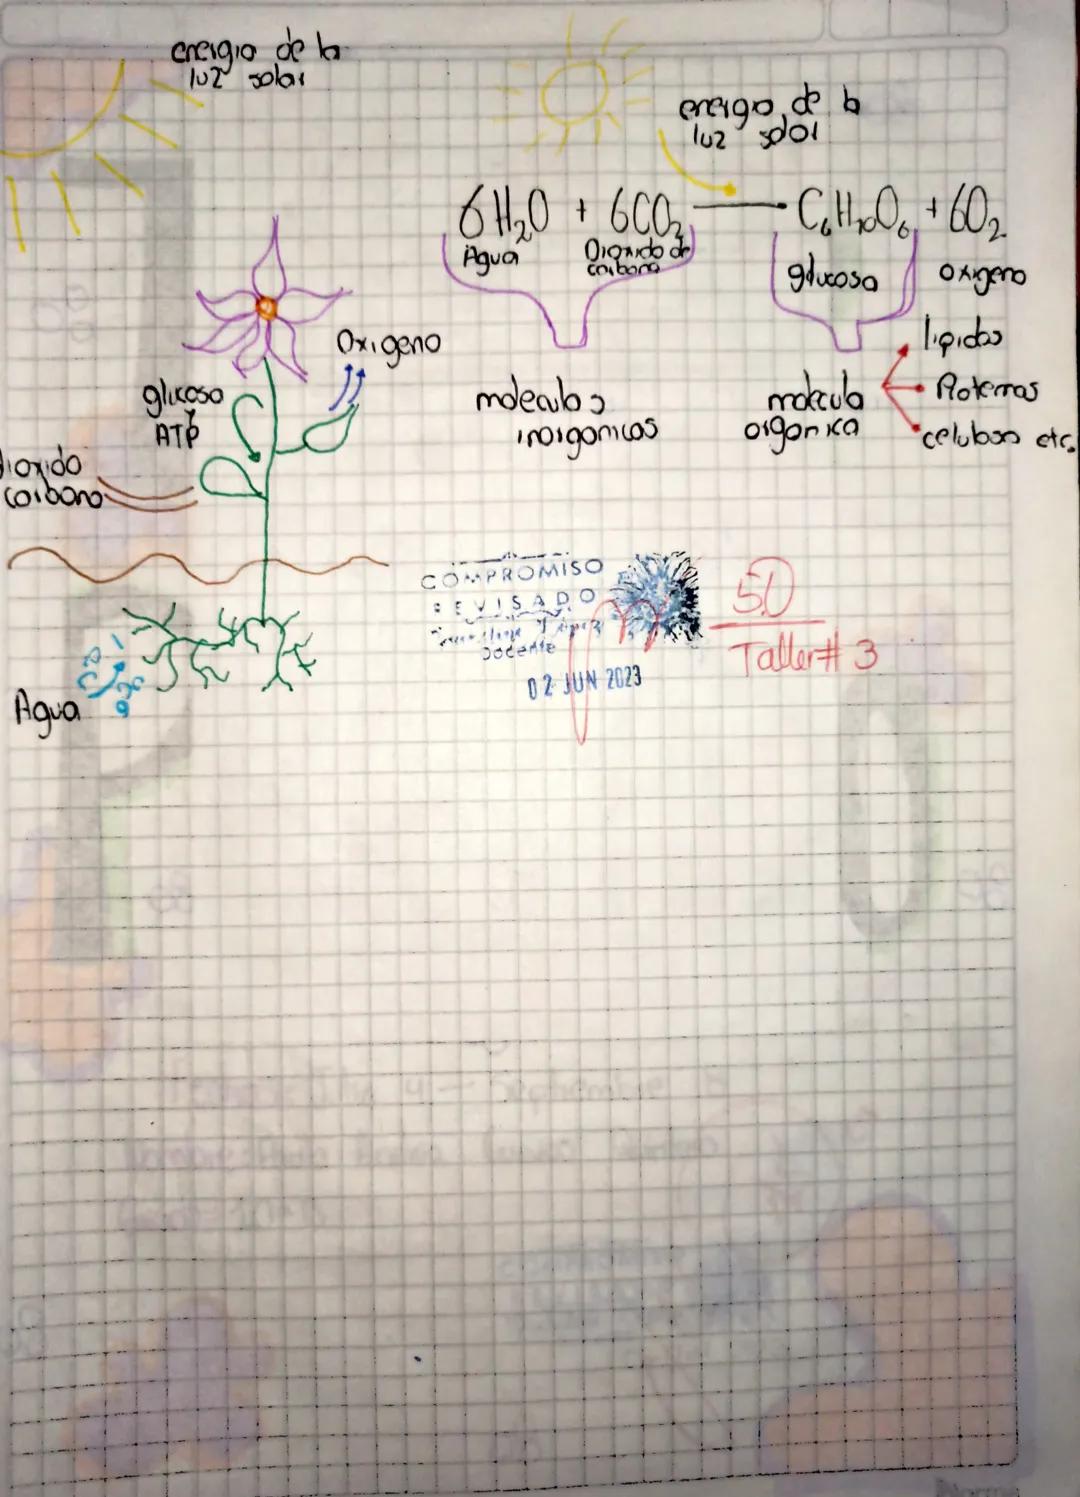 energia de la
luz solar
energia de la
luz solar
6H₂O + 6CO₂ — C₆H₁₀O₆ + 6O₂
Agua
Dioxido de
carbono
glucosa
oxigeno
Oxigeno
lipidos
glucosa
Y
ATP
moleculas
inorganicas
molecula
organica
Proteinas
celulosa etc.
dioxido
carbono
COMPROMISO
REVISADO
Docente
02 JUN 2023
5.0
Taller# 3
Agua
Norma